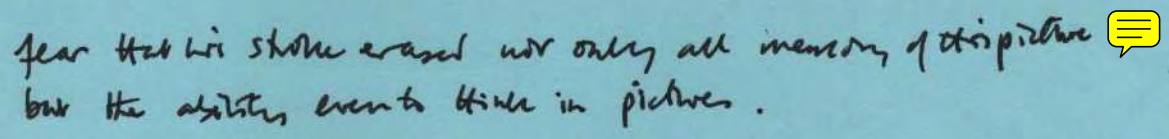 fear that his stroke erased not only all memory of this picture
but the ability even to think in pictures.